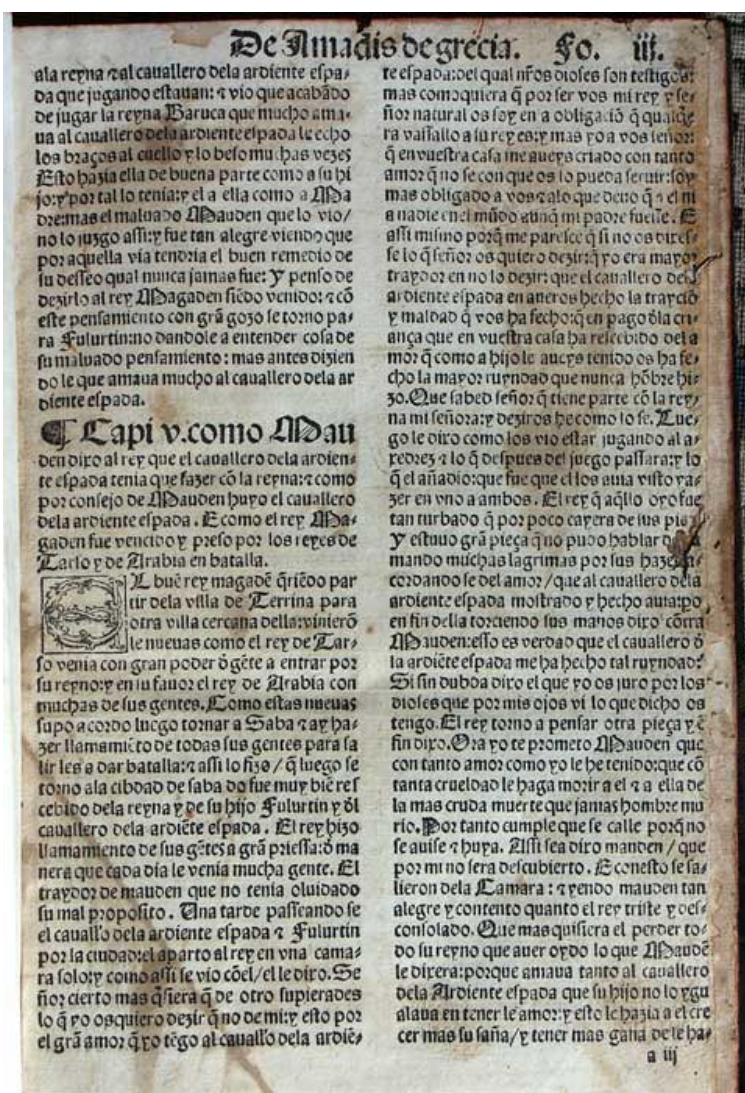 De Amadis de grecia. Fo. iij.
ala reyna ⁊ al cauallero dela ardiente espa-
da que jugando estauan: ⁊ vio que acabādo
de jugar la reyna Baruca que mucho ama-
ua al cauallero dela ardiente espada le echo
los braços al cuello y lo beso muchas vezes
Esto hazia ella de buena parte como a su hi
jo: y por tal lo tenia: y el a ella como a Ma
dre: mas el maluado Mauden que lo vio/
no lo juzgo assi: y fue tan alegre viendo que
por aquella via tendria el buen remedio de
su desseo qual nunca jamas fue: Y penso de
dezirlo al rey Magaden siēdo venido: ⁊ cō
este pensamiento con grā gozo se torno pa-
ra Fulurtin: no dandole a entender cosa de
su maluado pensamiento: mas antes dizien
do le que amaua mucho al cauallero dela ar
diente espada.
¶ Capi v. como Mau
den dixo al rey que el cauallero dela ardien-
te espada tenia que fazer cō la reyna: ⁊ como
por consejo de Mauden huyo el cauallero
dela ardiente espada. E como el rey Ma-
gaden fue vencido y preso por los reyes de
Tarso y de Arabia en batalla.
EL buē rey magadē q̄riēdo par
tir dela villa de Terrina para
otra villa cercana della: vinierō
le nueuas como el rey de Tar-
so venia con gran poder ō gēte a entrar por
su reyno: y en su fauor el rey de Arabia con
muchas de sus gentes. Como estas nueuas
supo acordo luego tornar a Saba ⁊ ay ha-
zer llamamiēto de todas sus gentes para sa
lir les a dar batalla: ⁊ assi lo fizo / q̄ luego se
torno ala cibdad de saba do fue muy biē res
cebido dela reyna y de su hijo Fulurtin y ōl
cauallero dela ardiēte espada. El rey hizo
llamamiento de sus gētes a grā priessa: ō ma
nera que cada dia le venia mucha gente. El
traydor de mauden que no tenia oluidado
su mal proposito. Una tarde passeando se
el cauall'o dela ardiente espada ⁊ Fulurtin
por la ciudad: el aparto al rey en vna cama-
ra solo: y como assi se vio cōel/ el le dixo. Se
ñor cierto mas q̄siera q̄ de otro supierades
lo q̄ yo os quiero dezir q̄ no de mi: y esto por
el grā amor q̄ yo tēgo al cauall'o dela ardiē-
te espada: del qual nr̄os dioses son testigos:
mas como quiera q̄ por ser vos mi rey y se-
ñor natural os soy en a obligaciō q̄ qualq̄e
ra vassallo a su rey es: y mas yo a vos señor:
q̄ en vuestra casa me aueys criado con tanto
amor q̄ no se con que os lo pueda seruir: soy
mas obligado a vos ⁊ alo que deuo q̄ a el ni
a nadie enel mūdo aunq̄ mi padre fuesse. E
assi mismo porq̄ me paresce q̄ si no os dixes-
se lo q̄ señor os quiero dezir: q̄ yo era mayor
traydor en no lo dezir: que el cauallero dela
ardiente espada en aueros hecho la trayciō
y maldad q̄ vos ha fecho: q̄ en pago ōla cri-
ança que en vuestra casa ha rescebido del a
mor q̄ como a hijo le aueys tenido os ha fe-
cho la mayor ruyndad que nunca hōbre hi-
zo. Que sabed señor q̄ tiene parte cō la rey-
na mi señora: y deziros he como lo se. Lue-
go le dixo como los vio estar jugando al a-
xedrez ⁊ lo q̄ despues del juego passara: y lo
q̄ el añadio: que fue que el los auia visto ya-
zer en vno a ambos. El rey q̄ aq̄llo oyo fue
tan turbado q̄ por poco cayera de sus pies
Y estuuo grā pieça q̄ no pudo hablar
mando muchas lagrimas por sus
cordando se del amor / que al cauallero dela
ardiente espada mostrado y hecho auia: po
en fin della torciendo sus manos dixo cōtra
Mauden: esso es verdad que el cauallero ō
la ardiēte espada me ha hecho tal ruyndad?
Si sin dubda dixo el que yo os juro por los
dioses que por mis ojos vi lo que dicho os
tengo. El rey torno a pensar otra pieça y ē
fin dixo. Ora yo te prometo Mauden que
con tanto amor como yo le he tenido: que cō
tanta crueldad le haga morir a el ⁊ a ella de
la mas cruda muerte que jamas hombre mu
rio. Por tanto cumple que se calle porq̄ no
se auise ⁊ huya. Assi sea dixo mauden / que
por mi no sera descubierto. E con esto se sa-
lieron dela Camara: ⁊ yendo mauden tan
alegre y contento quanto el rey triste y des-
consolado. Que mas quisiera el perder to-
do su reyno que auer oydo lo que Maudē
le dixera: porque amaua tanto al cauallero
dela Ardiente espada que su hijo no lo ygu
alaua en tener le amor: y esto le hazia a el cre
cer mas su saña/ y tener mas gana de le ha-
a iij